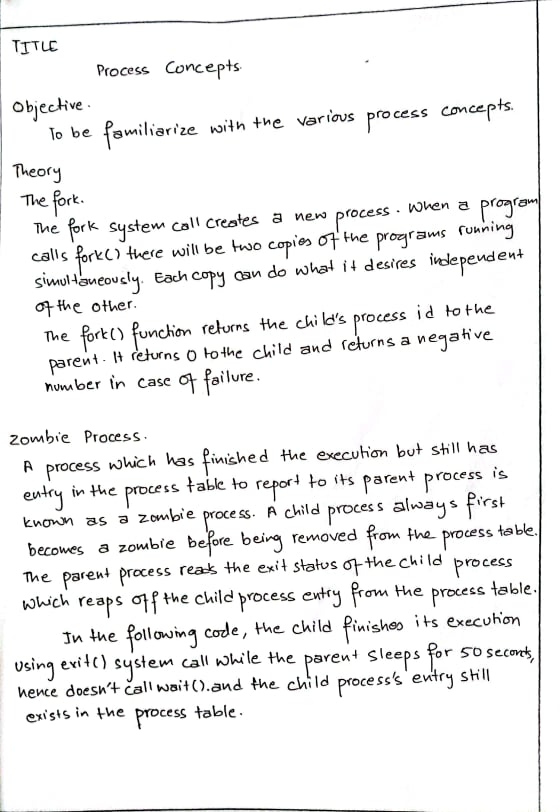 TITLE
Process Concepts.
Objective.
To be familiarize with the various process concepts.
Theory
The fork.
The fork system call creates a new process. When a program
calls fork() there will be two copies of the programs running
simultaneously. Each copy can do what it desires independent
of the other.
The fork() function returns the child's process id to the
parent. It returns 0 to the child and returns a negative
number in case of failure.
Zombie Process.
A process which has finished the execution but still has
entry in the process table to report to its parent process is
known as a zombie process. A child process always first
becomes a zombie before being removed from the process table.
The parent process reads the exit status of the child process
which reaps off the child process entry from the process table.
In the following code, the child finishes its execution
using exit() system call while the parent sleeps for 50 seconds,
hence doesn't call wait().and the child process's entry still
exists in the process table.